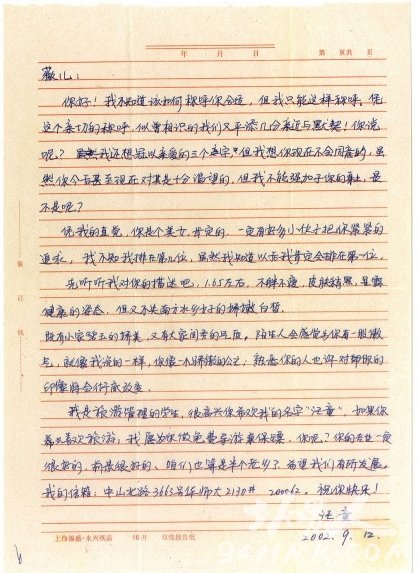 年 月 日 第 页共 页
薇儿：
你好！我不知道该如何称呼你合适，但我只能这样称呼。凭
这个亲切的称呼，似曾相识的我们又平添几分亲近与默契！你说
呢？我还想冠以亲爱的三个字，但我想你现在不会同意的，虽
然你今后甚至现在对其是十分渴望的，但我不能强加于你的身上，是
不是呢？
凭我的直觉，你是个美女，肯定的，一定有好多小伙子把你紧紧的
追求，我不知我排在第几位，虽然我知道以后我肯定会排在第一位，
先听听我对你的描述吧，1.65左右，不胖不瘦，皮肤稍黑，显露
健康的姿态，但又不失南方水乡好的白皙，
既有小家碧玉的美，又有大家闺秀的气质。陌生人会感觉与你有一股傲
气，就像我说的一样，你像一个骄傲的公主；熟悉你的人也许对那
印象将会彻底改变。
我是旅游管理的学生，很高兴你喜欢我的名字“汪童”，如果你
喜欢旅游，我愿为你做免费导游兼保镖，你呢？你的专业一定
很好的，前景很好的，咱们也算是半个老乡了，希望我们有所发展。
我的信箱：中山北路3663号华师大2130# 200062。祝你快乐！
汪童
2002.9.12.
装 订 线
上海福盛·永兴纸品 16开 双线报告纸